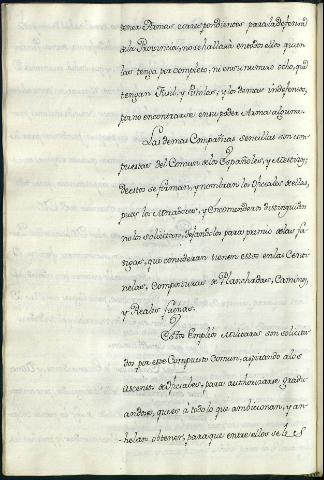 tener Armas correspondientes para la defensa
de la Provincia, no se hallará entodos ellos quien
las tenga por completo; ni en su numero ocho, que
tengan Fusil, y Pistolas; y los demas indefensos,
por no encontrarse en su poder Arma alguna.
Las demas Compañias sencillas son com
puestas del Comun de los Españoles, y Mestizos;
De estos se forman, y nombran los Oficiales de ellas,
pues los Meradores, y Encomenderos distinguidos
no lo solicitan, dejandolos para premio de las fa
tigas, que consideran tienen estos en las Centi
nelas, Composturas de Planchadas, Caminos,
y Reales faenas.
Estos Empleos Militares son solicita
dos por este Compuesto Comun, aspirando a los
ascensos de Oficiales, para authorizarse gradu
andose, que es á todo lo que ambicionan, y an-
helan obtener, para que entre ellos se les